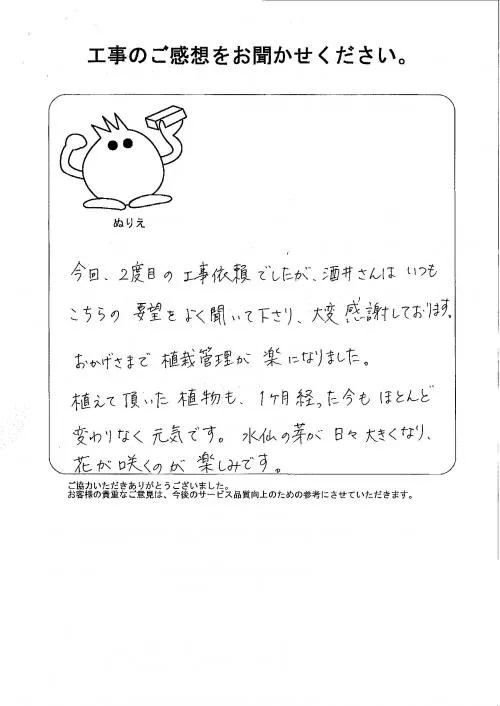 工事のご感想をお聞かせください。
ぬりえ
今回、2度目の工事依頼でしたが、酒井さんはいつも
こちらの要望をよく聞いて下さり、大変感謝しております。
おかげさまで植栽管理が楽になりました。
植えて頂いた植物も、1ヶ月経った今もほとんど
変わりなく元気です。水仙の芽が日々大きくなり、
花が咲くのが楽しみです。
ご協力いただきありがとうございました。
お客様の貴重なご意見は、今後のサービス品質向上のための参考にさせていただきます。